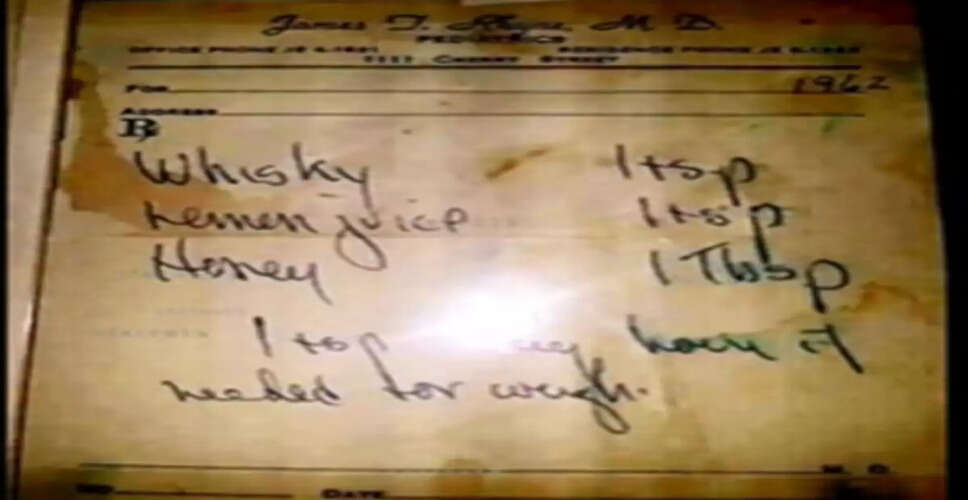 James T. M. D.
PEDIATRICS
OFFICE PHONE RESIDENCE PHONE
1111 CHERRY STREET
FOR 1962
ADDRESS
℞
Whisky 1 tsp
Lemon juice 1 tsp
Honey 1 Tbsp
1 tsp hour if
needed for cough.
M. D.
NO. DATE